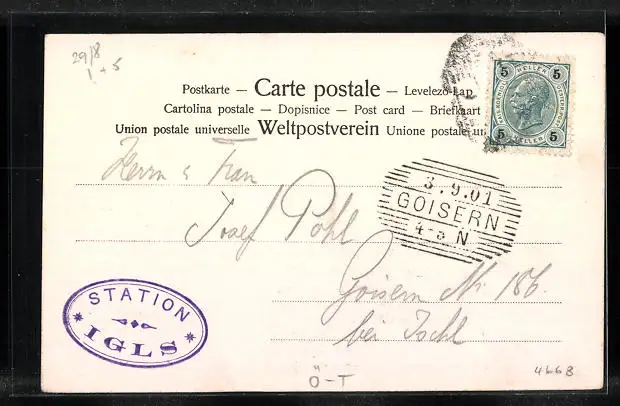 29/8
1+5
Postkarte – Carte postale – Levelezö-Lap
Cartolina postale – Dopisnice – Post card – Briefkaart
Union postale universelle Weltpostverein Unione postale un
5 HELLER 5
5 HELLER 5
Herrn & Frau
Josef Pohl
3.9.01
GOISERN
4-5 N
Goisern Nr. 186
bei Ischl
STATION
IGLS
Ö-T
4668